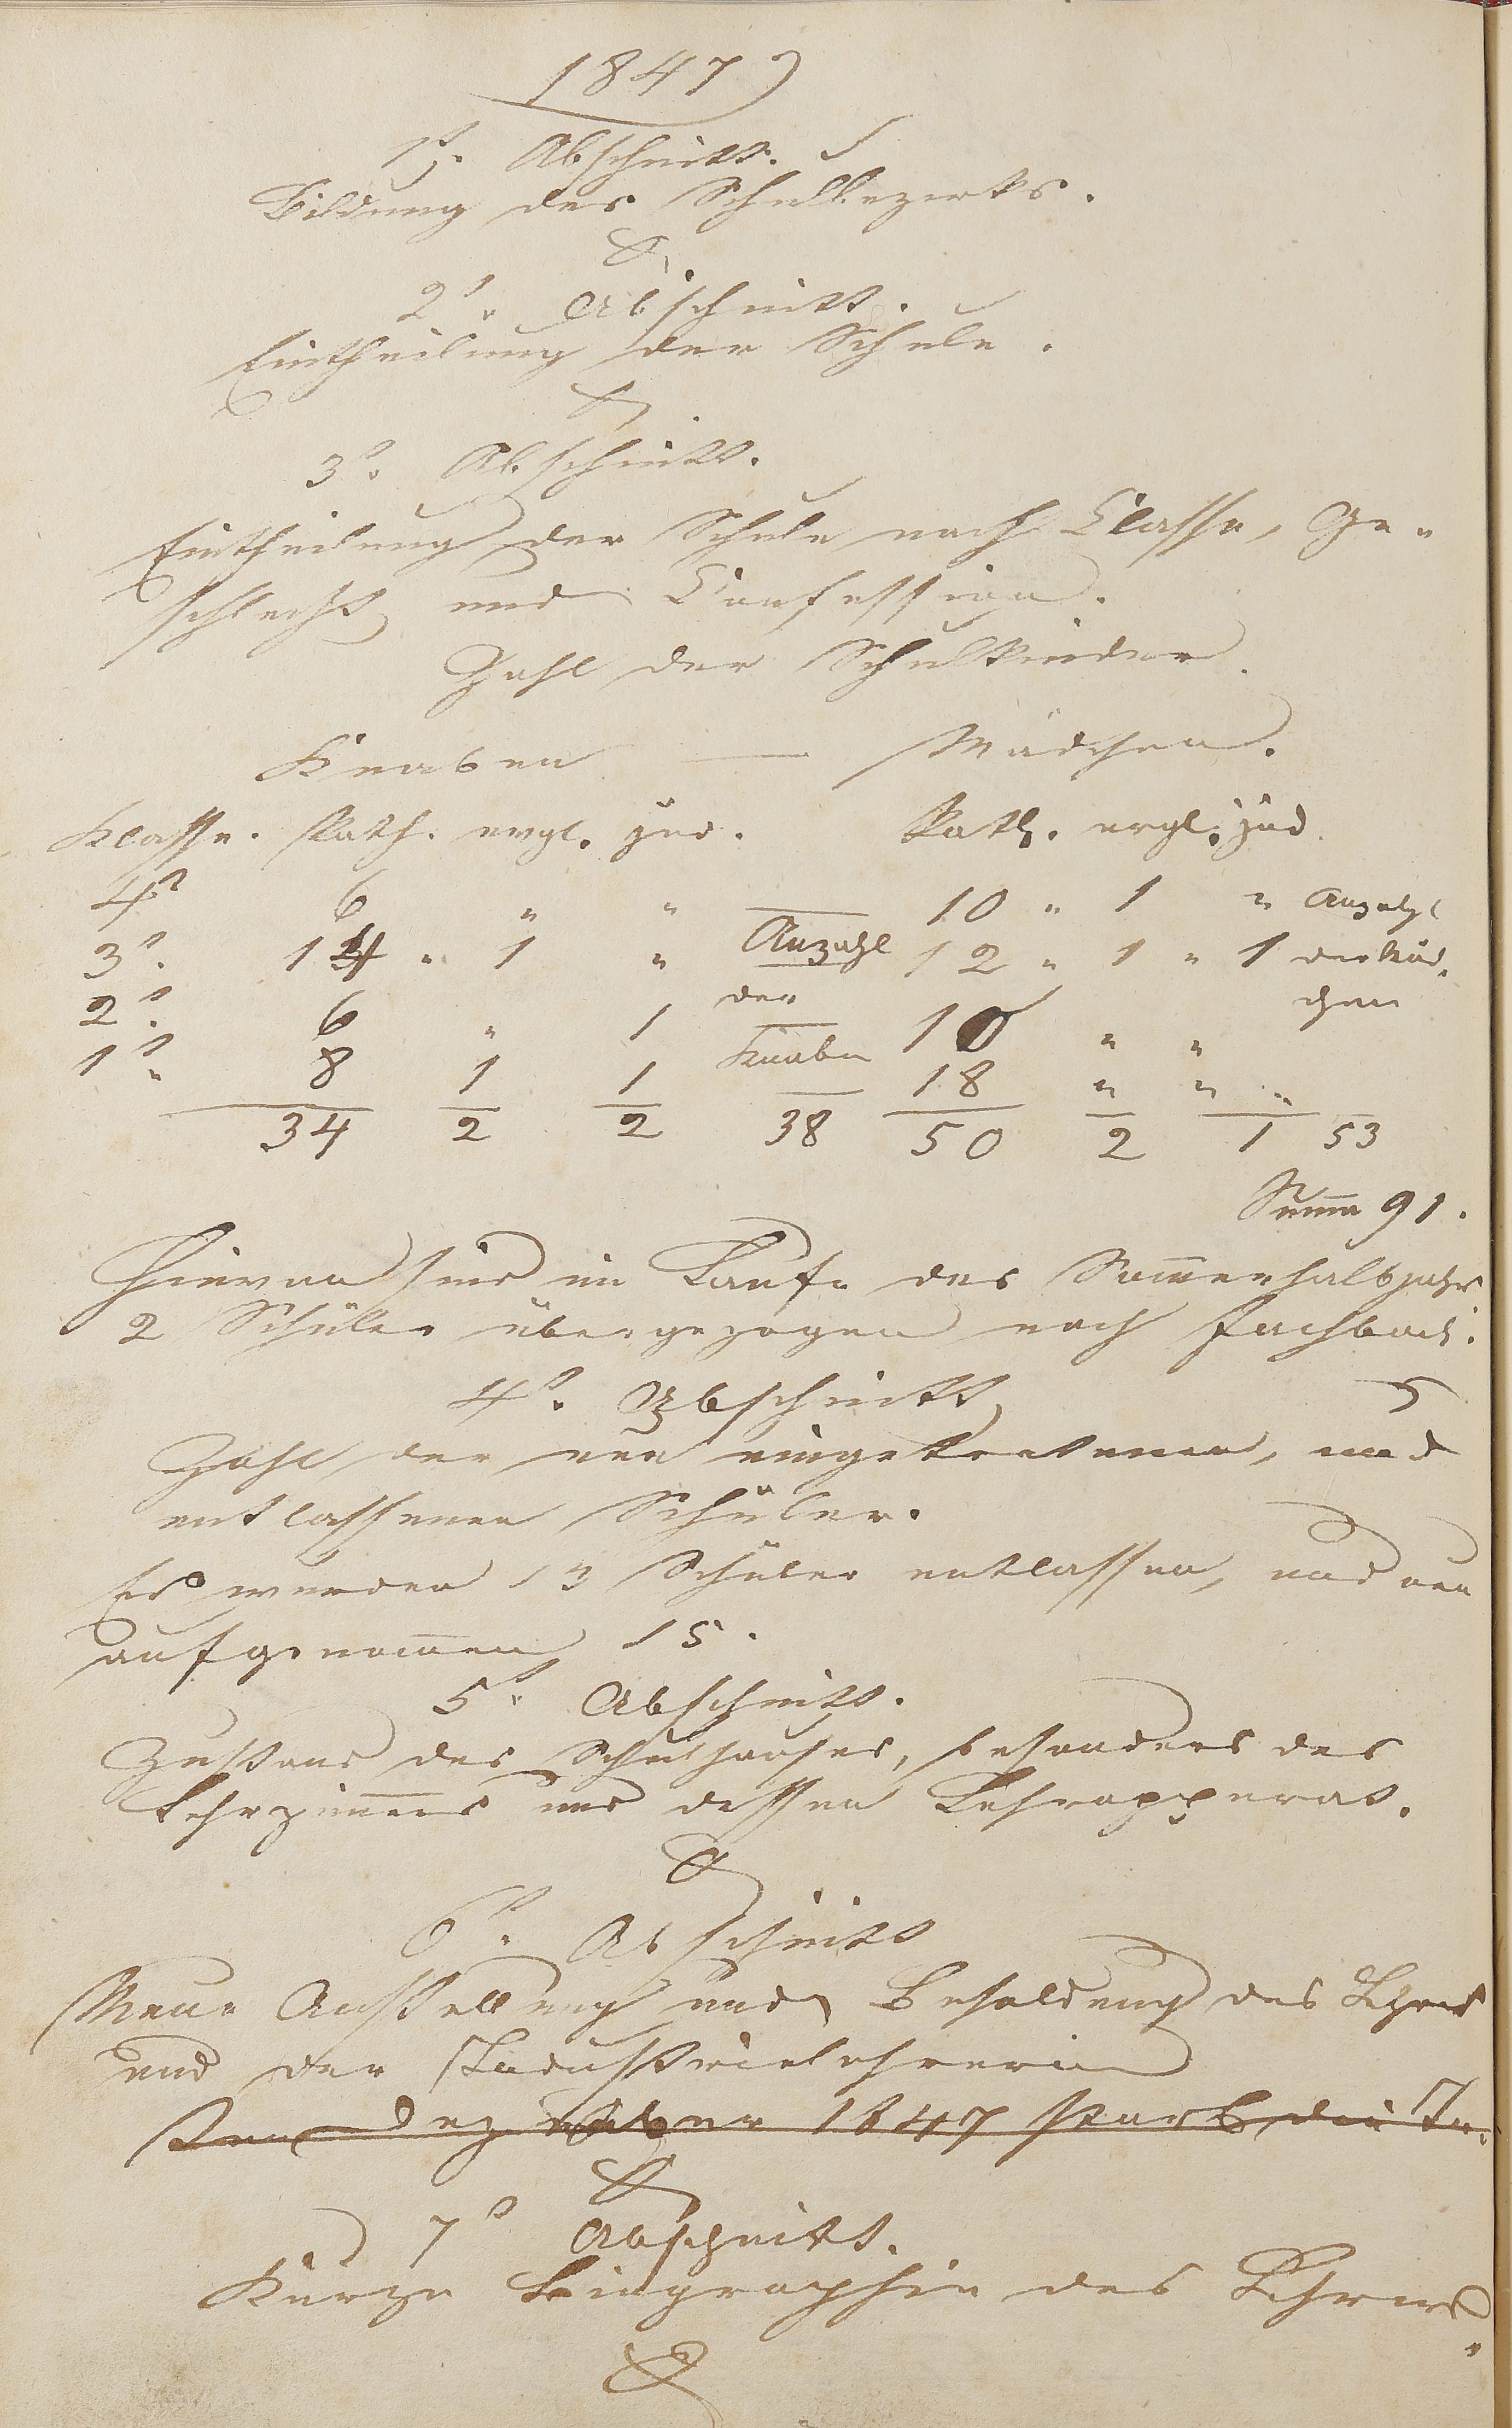 1847
1r. Abschnitt.
Bildung des Schulbezirks.
2r. Abschnitt.
Eintheilung der Schule.
3r. Abschnitt.
Eintheilung der Schule nach Classe, Ge-
schlecht und Confession.
Zahl der Schulkinder.
Knaben — Mädchen.
Klasse. Kath. evgl. jüd. Kath. evgl. jüd.
4r 6 " " 10 " 1 " Anzahl
3r. 14 " 1 " Anzahl 12 " 1 " 1 der Mäd-
2r. 6 " 1 der 10 " " chen
1r. 8 1 1 Knaben 18 " " "
34 2 2 38 50 2 1 53
Summa 91.
Hievon sind im Laufe des Sommerhalbjahrs
2 Schüler übergezogen nach Fachbach.
4r. Abschnitt
Zahl der neu eingetretenen, und
entlassenen Schüler.
Es wurden 13 Schüler entlassen, und neu
aufgenommen 15.
5r. Abschnitt.
Zustand des Schulhauses, besonders des
Lehrzimmers und dessen Lehrapperat.
6r. Abschnitt
Neue Anstellung und Besoldung des Lehrers
und der Industrielehrerin
Dezember 1847 starb die In-
7r Abschnitt.
Kurze Biographie des Lehrers.